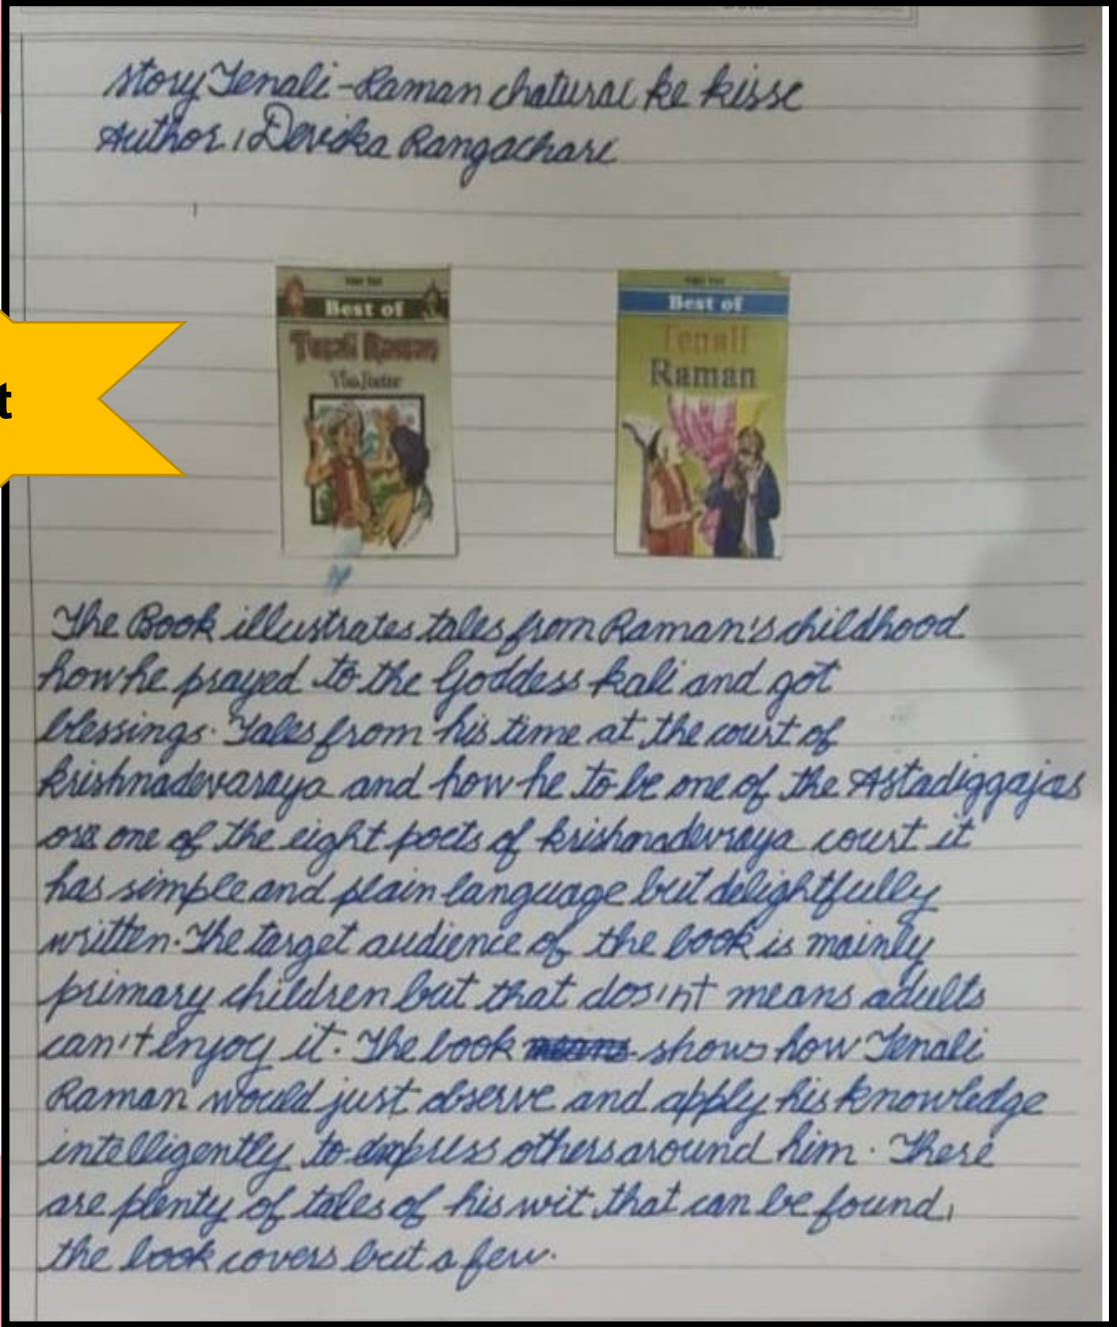 t
story Tenali-Raman chaturai ke kisse
Author, Devika Rangachari
Best of
Tenali Raman
The Jester
Best of
Tenali
Raman
The Book illustrates tales from Raman's childhood
how he prayed to the Goddess kali and got
blessings. Tales from his time at the court of
krishnadevaraya and how he to be one of the Astadiggajas
ore one of the eight poets of krishnadevraya court it
has simple and plain language but delightfully
written. The target audience of the book is mainly
primary children but that dos'nt means adults
can't enjoy it. The book means shows how Tenali
Raman would just observe and apply his knowledge
intelligently to impress others around him. There
are plenty of tales of his wit that can be found,
the book covers but a few.